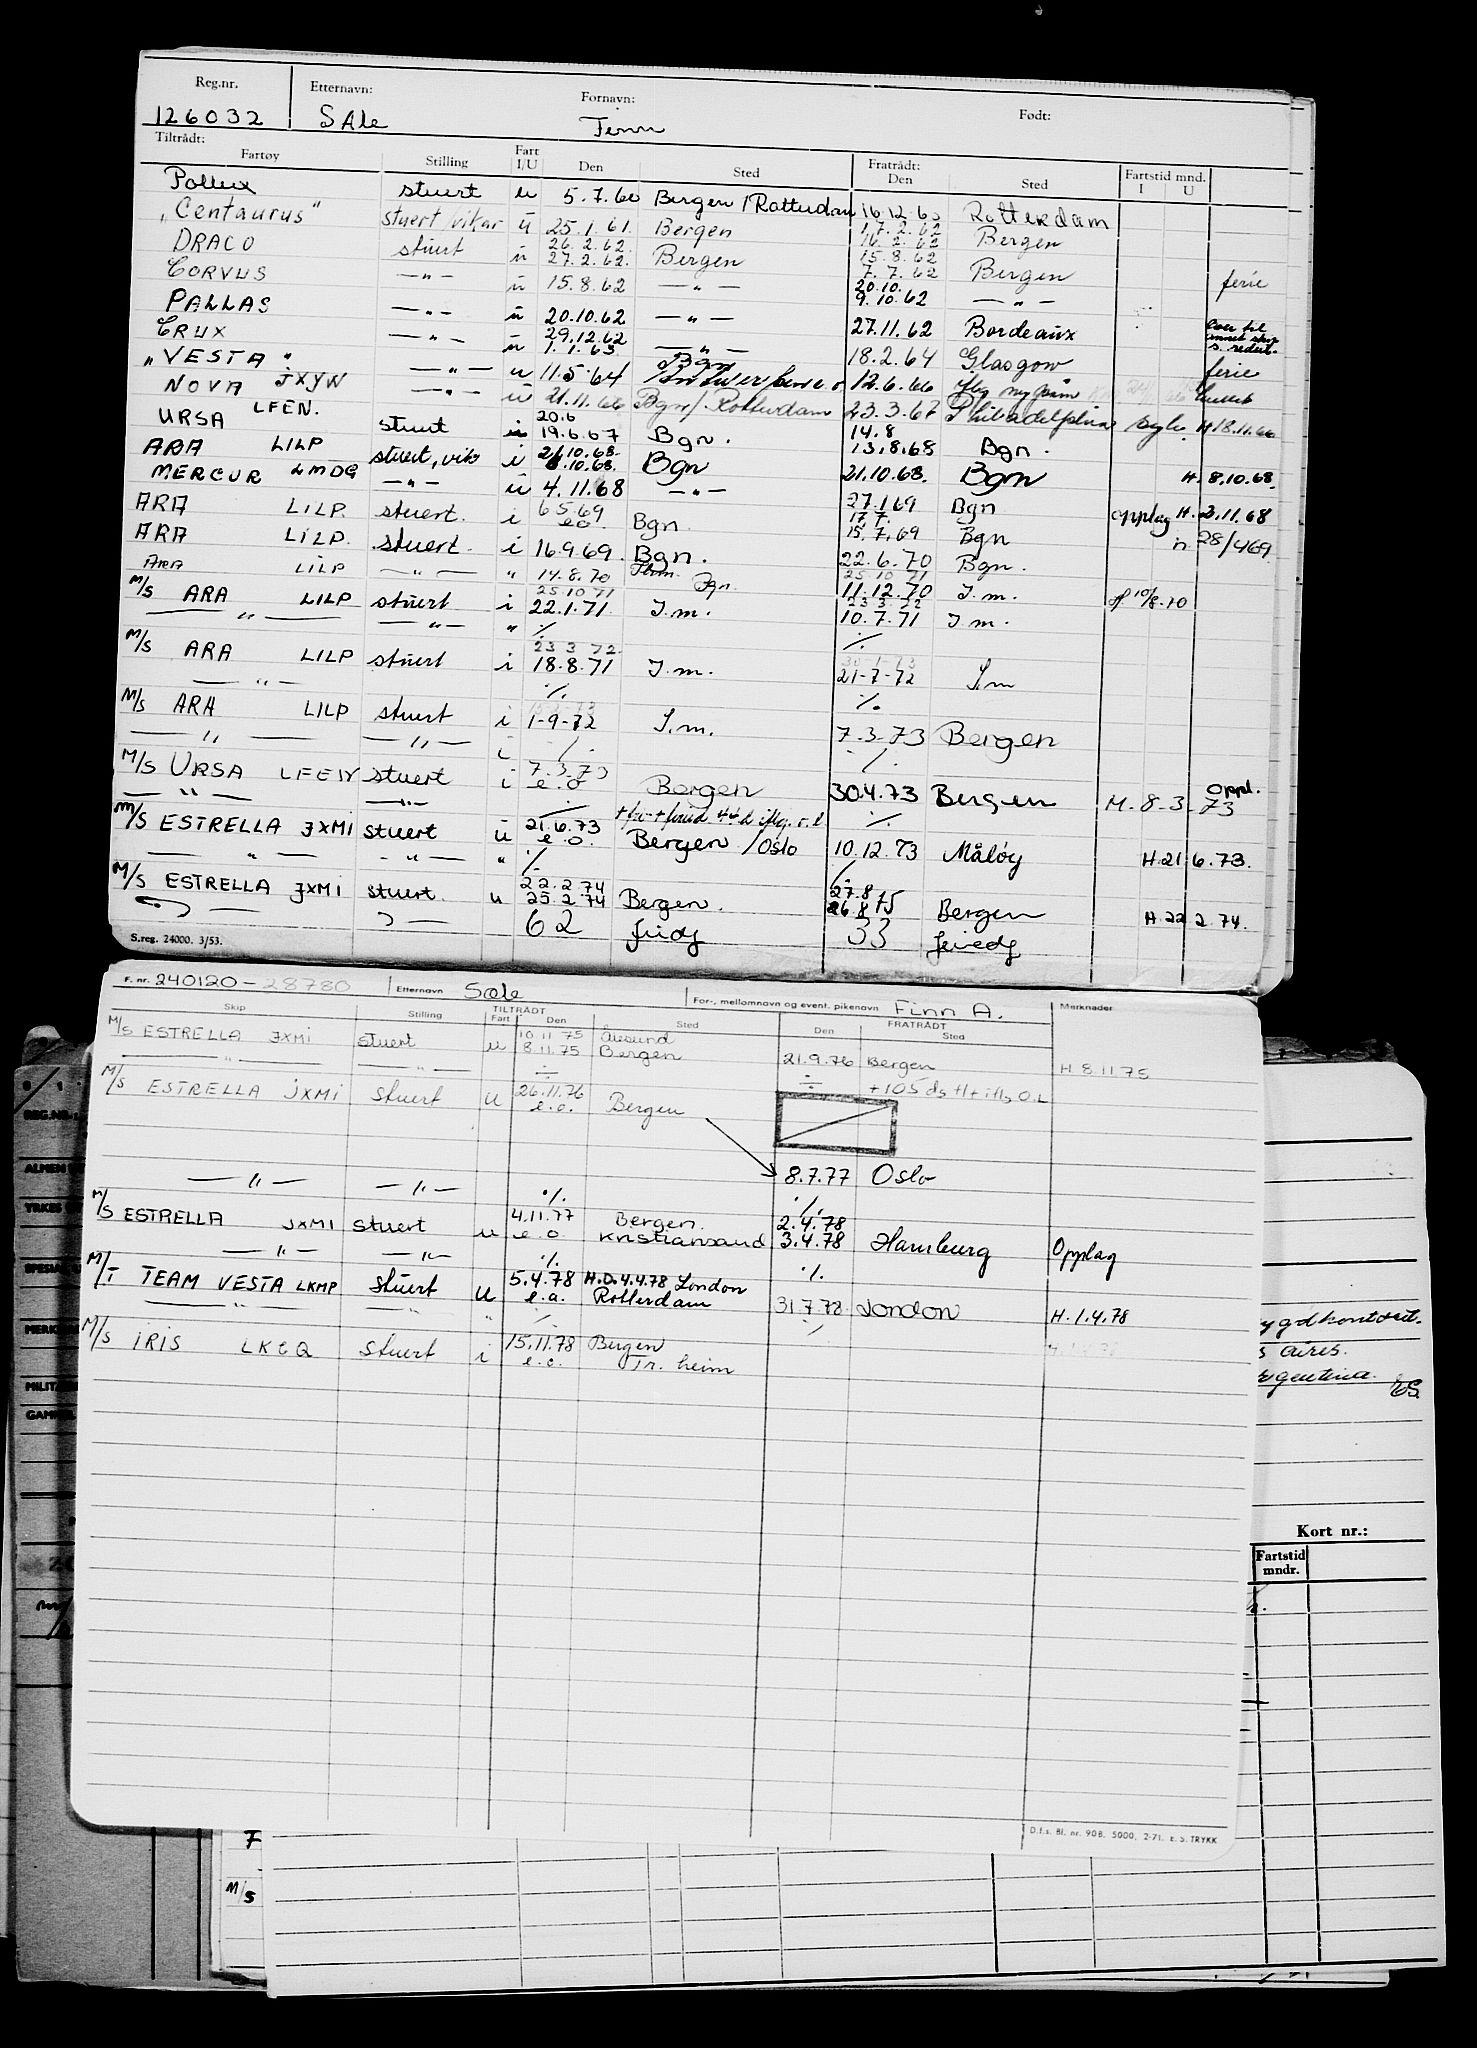 Reg.nr. Etternavn: Fornavn: Født:
126032 SÆle Finn
Tiltrådt: Fratrådt: Fartstid mnd.
Fartøy Stilling Fart I/U Den Sted Den Sted I U
Pollux stuert u 5.7.60 Bergen / Rotterdam 16.12.60 Rotterdam
"Centaurus" stuert vikar u 25.1.61. Bergen 17.2.62
DRACO stuert u 26.2.62. 27.2.62. Bergen 16.2.62 15.8.62 Bergen
CORVUS — " — u 15.8.62 — " — 7.7.62 Bergen ferie
PALLAS — " — u 20.10.62 — " — 20.10. 9.10.62 — " —
CRUX — " — u 29.12.62 1.1.63 — " — 27.11.62 Bordeaux
"VESTA" — " — u 11.5.64 18.2.64 Glasgow ferie
NOVA JXYW — " — u 21.11.66 Bgn / Rotterdam 12.6.66
URSA LFEN. stuert 20.6 19.6.67 Bgn. 23.3.67 Philadelphia H 18.11.66
ARA LILP stuert, vik i 21.10.68. 8.10.68. Bgn 14.8 13.8.68 Bgn.
MERCUR LMDG — " — u 4.11.68 — " — 21.10.68. Bgn H. 8.10.68.
ARA LILP. stuert. i 6.5.69 e.o. Bgn. 27.1.69 Bgn opplag H. 2.11.68
ARA LILP. stuert. i 16.9.69 Bgn. 17.7. 15.7.69 Bgn n 28/4 69
ARA LILP — " — " 14.8.70 Bgn. 22.6.70 Bgn.
M/S ARA LILP stuert i 25.10.71 22.1.71 I.m. 25.10.71 11.12.70 I.m. 10/8.70
— " — — " — " ./. 23.3.72 10.7.71 I.m.
M/S ARA LILP stuert i 23.3.72. 18.8.71 I.m. ./.
— " — ./. 30.1.73 21-7-72 I.m
M/S ARA LILP stuert i 1-9-72 I.m. ./.
— " — — " — i ./. 7.3.73 Bergen
M/S URSA LFEN stuert i 7.3.73 e.o Bergen ./.
— " — — " — ./. 30.4.73 Bergen M-8-3-73 Oppl.
M/S ESTRELLA JXMI stuert u 21.6.73 e.o. Bergen / Oslo ./.
— " — — " — " ./. 10.12.73 Måløy H.21 6.73.
M/S ESTRELLA JXMI stuert. u 22.2.74 25.2.74 Bergen. 27.8 26.8.75 Bergen H.22 2.74.
62 33
S.reg. 24000. 3/53.
F. nr. 240120-28780 Etternavn Sæle For-, mellomnavn og event. pikenavn Finn A. Merknader
Skip Stilling TILTRÅDT Fart Den Sted FRATRÅDT Den Sted
M/S ESTRELLA JXMI stuert u 10.11.75 8.11.75 Ålesund Bergen 21.9.76 Bergen H. 8.11.75
— " — — " — ./. ./. +105 ds
M/S ESTRELLA JXMI stuert u 26.11.76 e.o. Bergen
— " — — " — ./. 8.7.77 Oslo
M/S ESTRELLA JXMI stuert u 4.11.77 e.o. Bergen. Kristiansand ./. 2.4.78
— " — — " — ./. 3.4.78 Hamburg Opplag
M/T TEAM VESTA LKMP stuert u 5.4.78 e.o. H.D. 4.4.78 London Rotterdam ./.
— " — — " — " ./. 31.7.78. London H. 1.4.78
M/S IRIS LKCQ stuert i 15.11.78 e.o. Bergen Tr. heim ./.
D.f.s. Bl. nr. 90B. 5000, 2-71. E.S. TRYKK
REG.NR.
s aires.
rgentina.
ES.
Kort nr.:
Fartstid
mndr.
7
M/S